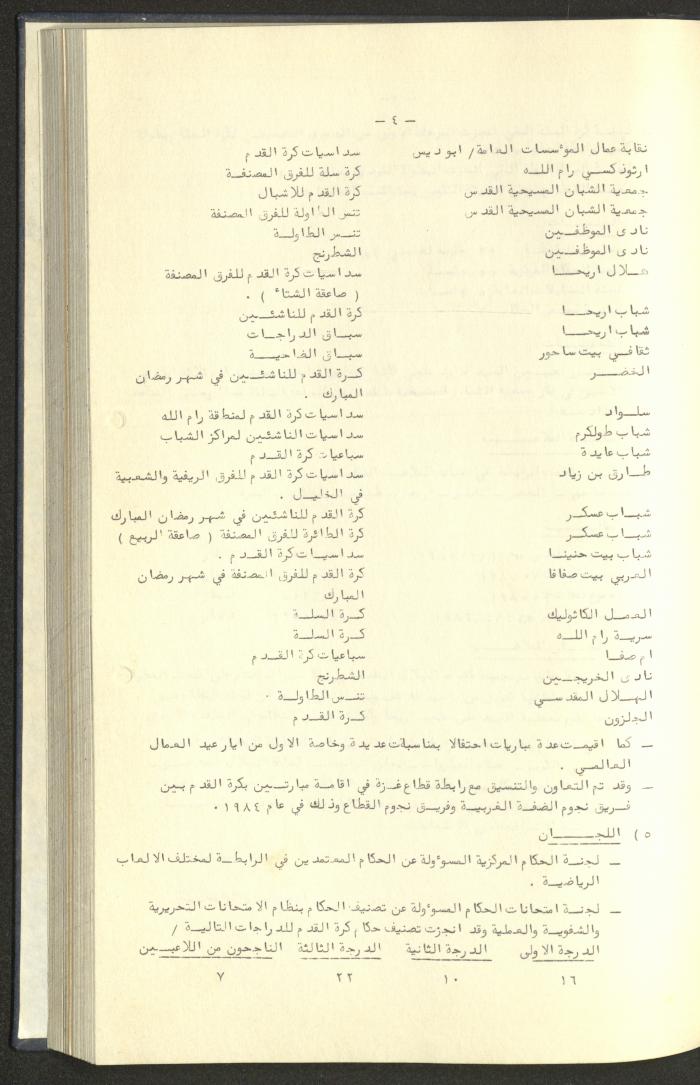 - ٤ -
نقابة عمال الموؤسسات العامة/ ابو ديس سداسيات كرة القدم
ارثوذكسي رام اللـه كرة سلة للفرق المصنفـة
جمعية الشبان المسيحية القدس كرة القدم للاشبال
جمعية الشبان المسيحية القدس تنس الطاولة للفرق المصنفة
نادى الموظفـين تنـس الطاولـة
نادى الموظفـين الشطرنج
هـلال اريحـا سداسيات كرة القدم للفرق المصنفة
( صاعقة الشتاء ) .
شباب اريحـا كرة القدم للناشئـين
شباب اريحـا سبـاق الدراجـات
ثقافـي بيت ساحور سبـاق الضاحيـة
الخضـر كـرة القدم للناشئـين في شهر رمضان
المبارك .
سلـواد سداسيات كرة القدم لمنطقة رام الله
شباب طولكرم سداسيات الناشئـين لمراكز الشباب
شباب عايدة سباعيات كرة القـدم
طـارق بن زياد سداسيات كرة القدم للفرق الريفية والشعبية
في الخليـل .
شبـاب عسكـر كرة القدم للناشئـين في شهر رمضان المبارك
شبـاب عسكـر كرة الطائرة للفرق المصنفة ( صاعقة الربيع )
شباب بيت حنينـا سداسيـات كرة القـدم .
العربي بيت صفافا كرة القدم للفرق المصنفة في شهر رمضان
المبارك
العمـل الكاثوليك كـرة السلـة
سريـة رام اللـه كـرة السلـة
ام صفـا سباعيات كرة القـدم
نادى الخريجـين الشطرنج
الهـلال المقدسـي تنـس الطاولـة .
الجلزون كـرة القـدم
- كما اقيمـت عدة مباريات احتفالا بمناسبات عديدة وخاصة الاول من ايار عيد العمال
العالمـي .
- وقد تم التعاون والتنسيق مع رابطة قطاع غـزة في اقامـة مبارتـين بكرة القدم بـين
فـريق نجوم الضفـة الغربيـة وفريـق نجوم القطاع وذلك في عام ١٩٨٤ .
٥ ) اللجـــان
- لجنـة الحكام المركزية المسوؤولة عن الحكام المعتمدين في الرابطـة لمختلف الالعاب
الرياضيـة .
- لجنـة امتحانات الحكام المسوؤولة عن تصنيف الحكام بنظام الامتحانات التحريرية
والشفويـة والعملية وقد انجزت تصنيف حكام كرة القدم للدراجات التاليـة /
الدرجة الاولى الدرجة الثانية الدرجة الثالثة الناجحون من اللاعبـين
١٦ ١٠ ٢٢ ٧